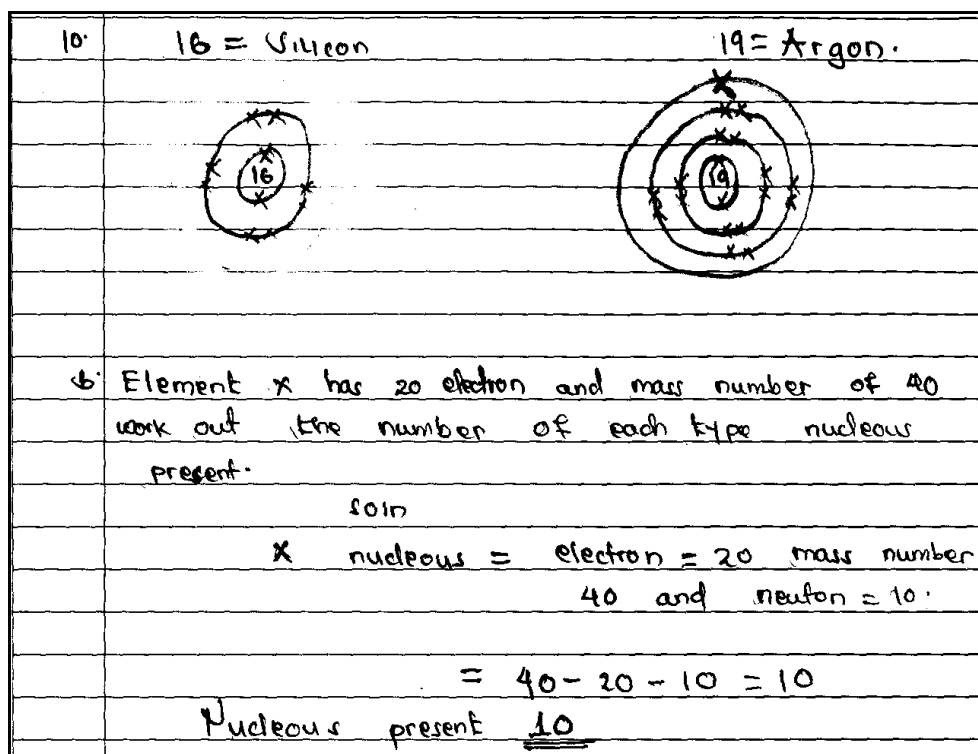 10. 16 = Silicon 19 = Argon.
16 19
b. Element x has 20 electron and mass number of 40
work out the number of each type nucleous
present.
soln
x nucleous = electron = 20 mass number
40 and neuton = 10.
= 40 - 20 - 10 = 10
Nucleous present 10